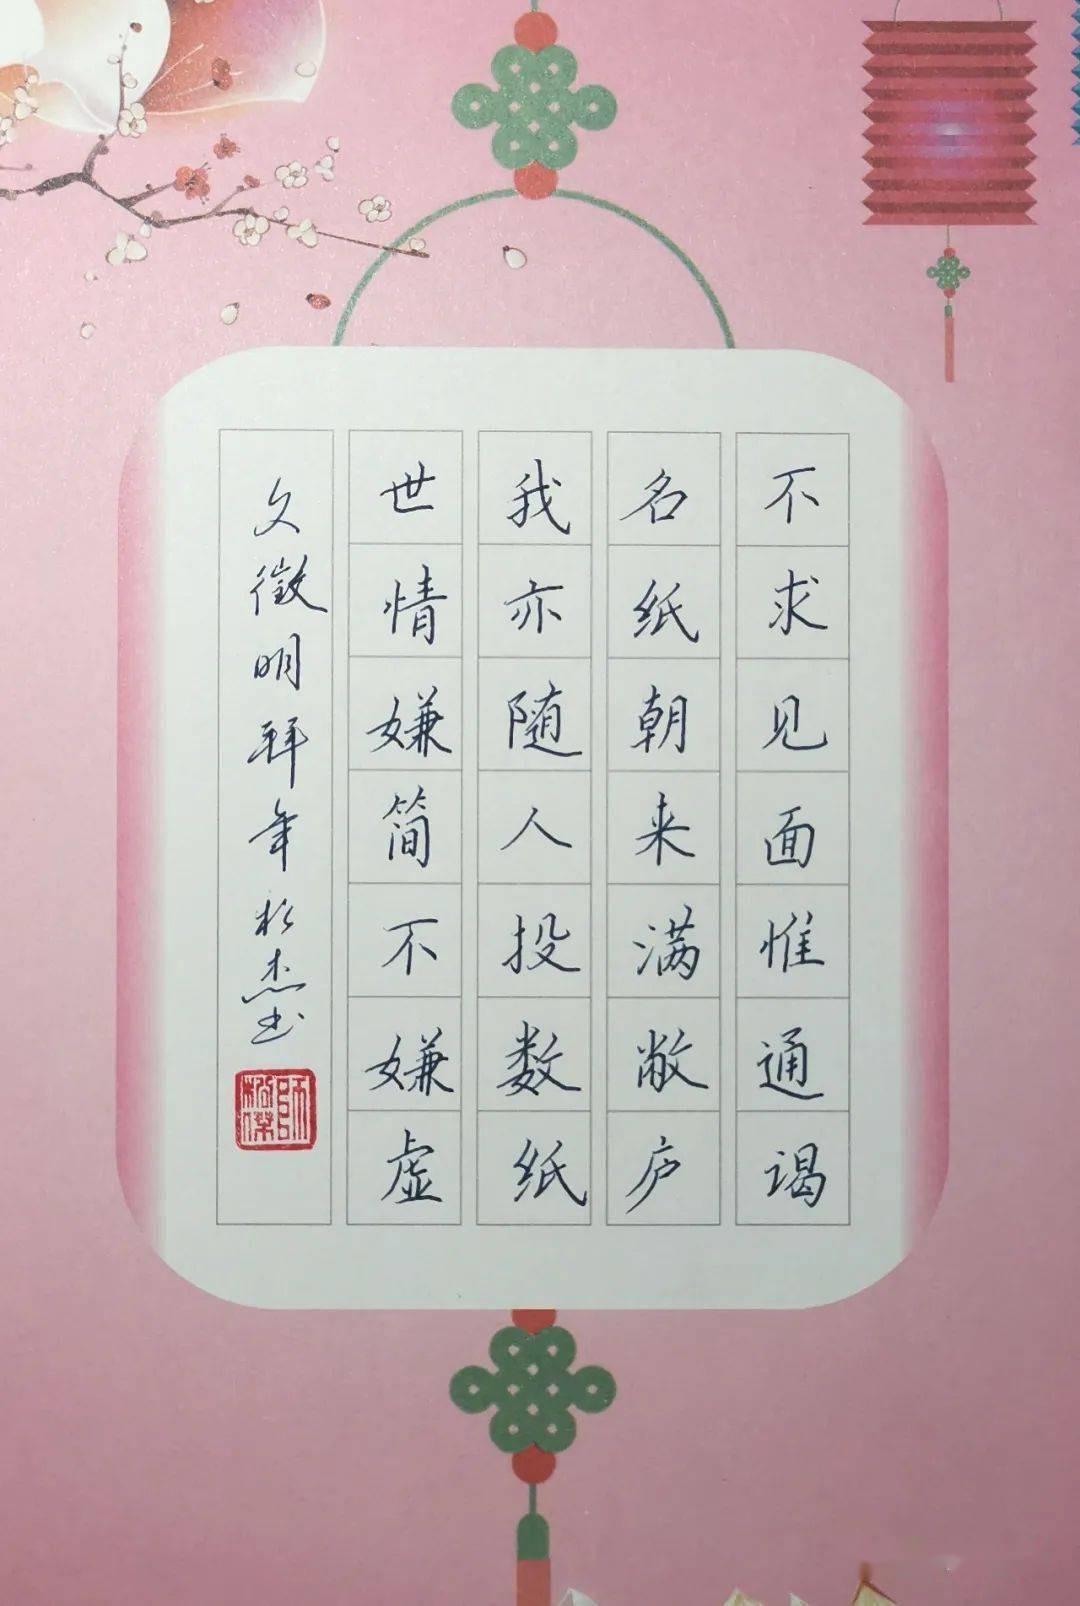 不求见面惟通谒
名纸朝来满敝庐
我亦随人投数纸
世情嫌简不嫌虚
文徵明拜年 松杰书